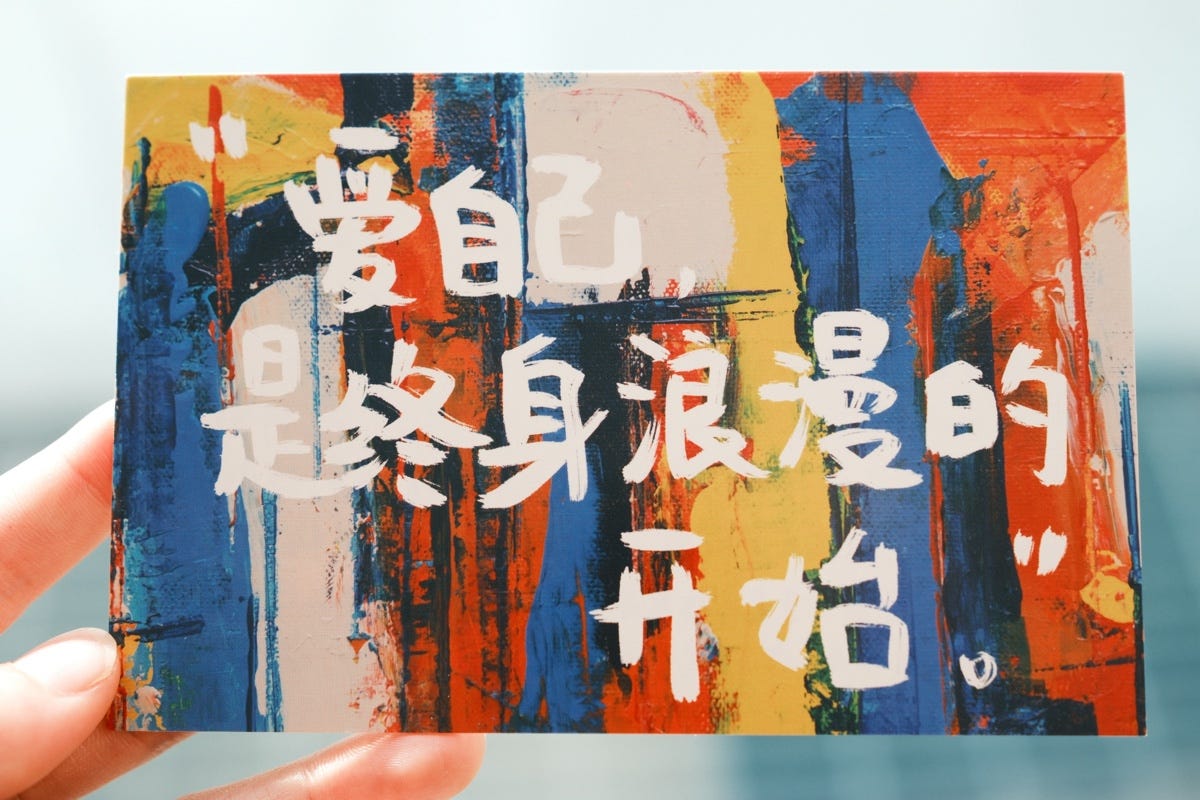 “爱自己,
是终身浪漫的
开始。”